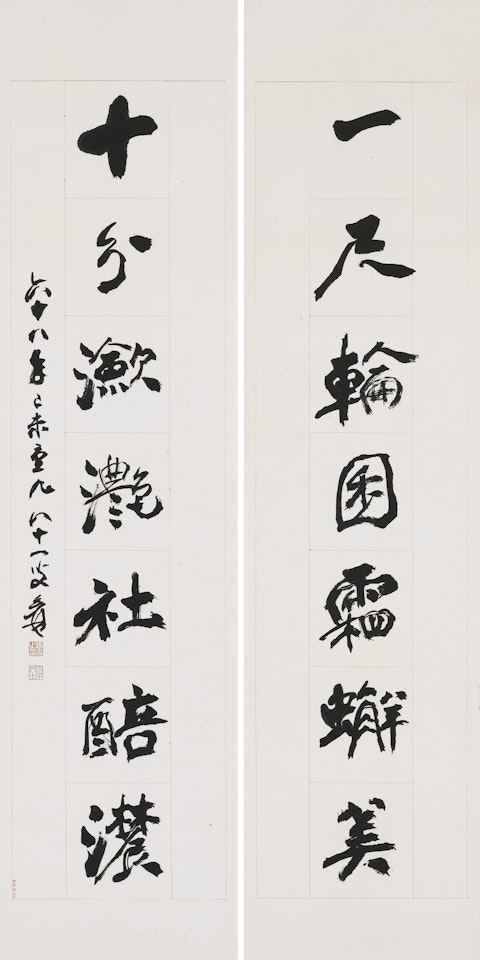 一尺輪囷霜蠏美
十分瀲灔社醅濃
六十八年己未重九八十一叟爰